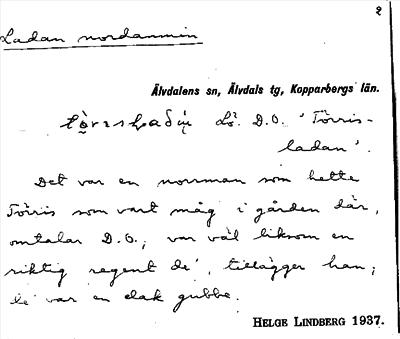 2
Ladan nordanmin
Älvdalens sn, Älvdals tg, Kopparbergs län.
D.O. 'Törris-
ladan'.
Det var en norrman som hette
Törris som vart måg i gården där,
omtalar D.O.; var väl liksom en
riktig regent de', tillägger han;
de' var en elak gubbe.
HELGE LINDBERG 1937.